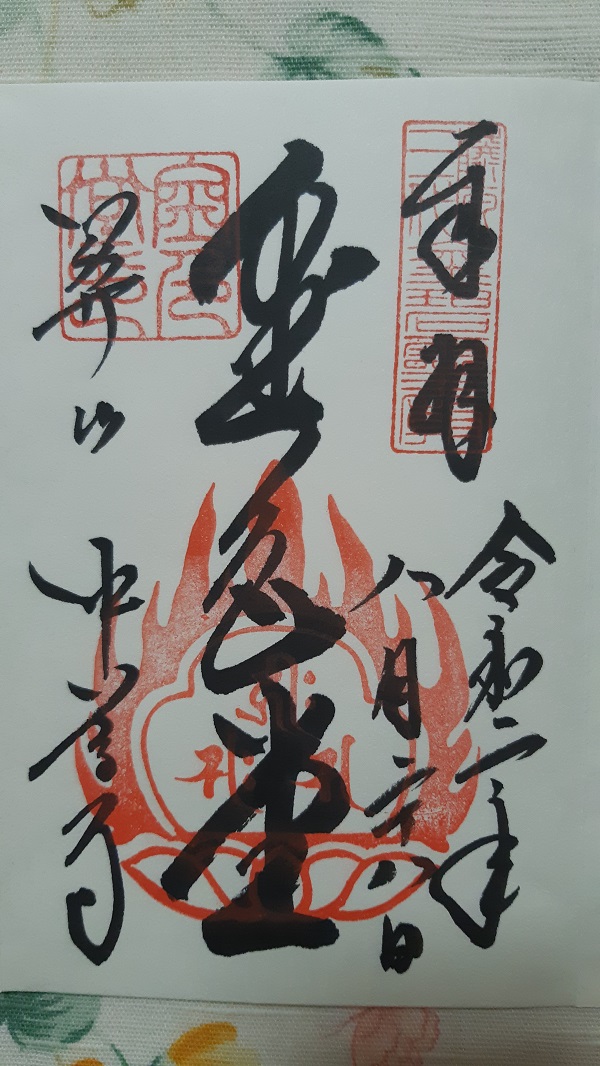 奉拝
令和二年
八月二十八日
金色堂
関山 中尊寺